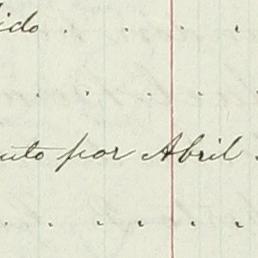 ido . . .
. . . . .
uto por Abril .
. . . . . .